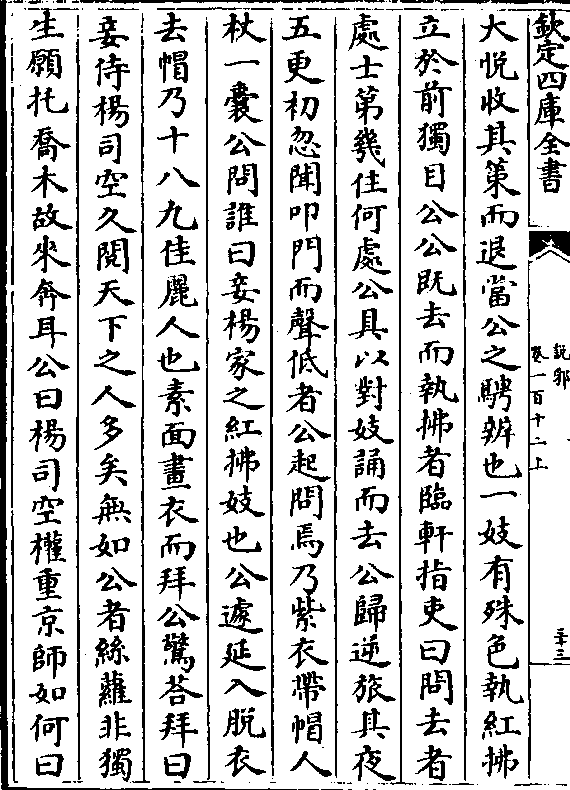 欽定四庫全書
說郛
卷一百十二上
三十三
大悦收其策而退當公之騁辨也一妓有殊色執紅拂
立於前獨目公公既去而執拂者臨軒指吏曰問去者
處士第幾住何處公具以對妓誦而去公歸逆旅其夜
五更初忽聞叩門而聲低者公起問焉乃紫衣帶帽人
杖一囊公問誰曰妾楊家之紅拂妓也公遽延入脱衣
去帽乃十八九佳麗人也素面畫衣而拜公驚荅拜曰
妾侍楊司空久閱天下之人多矣無如公者絲蘿非獨
生願托喬木故來奔耳公曰楊司空權重京師如何曰